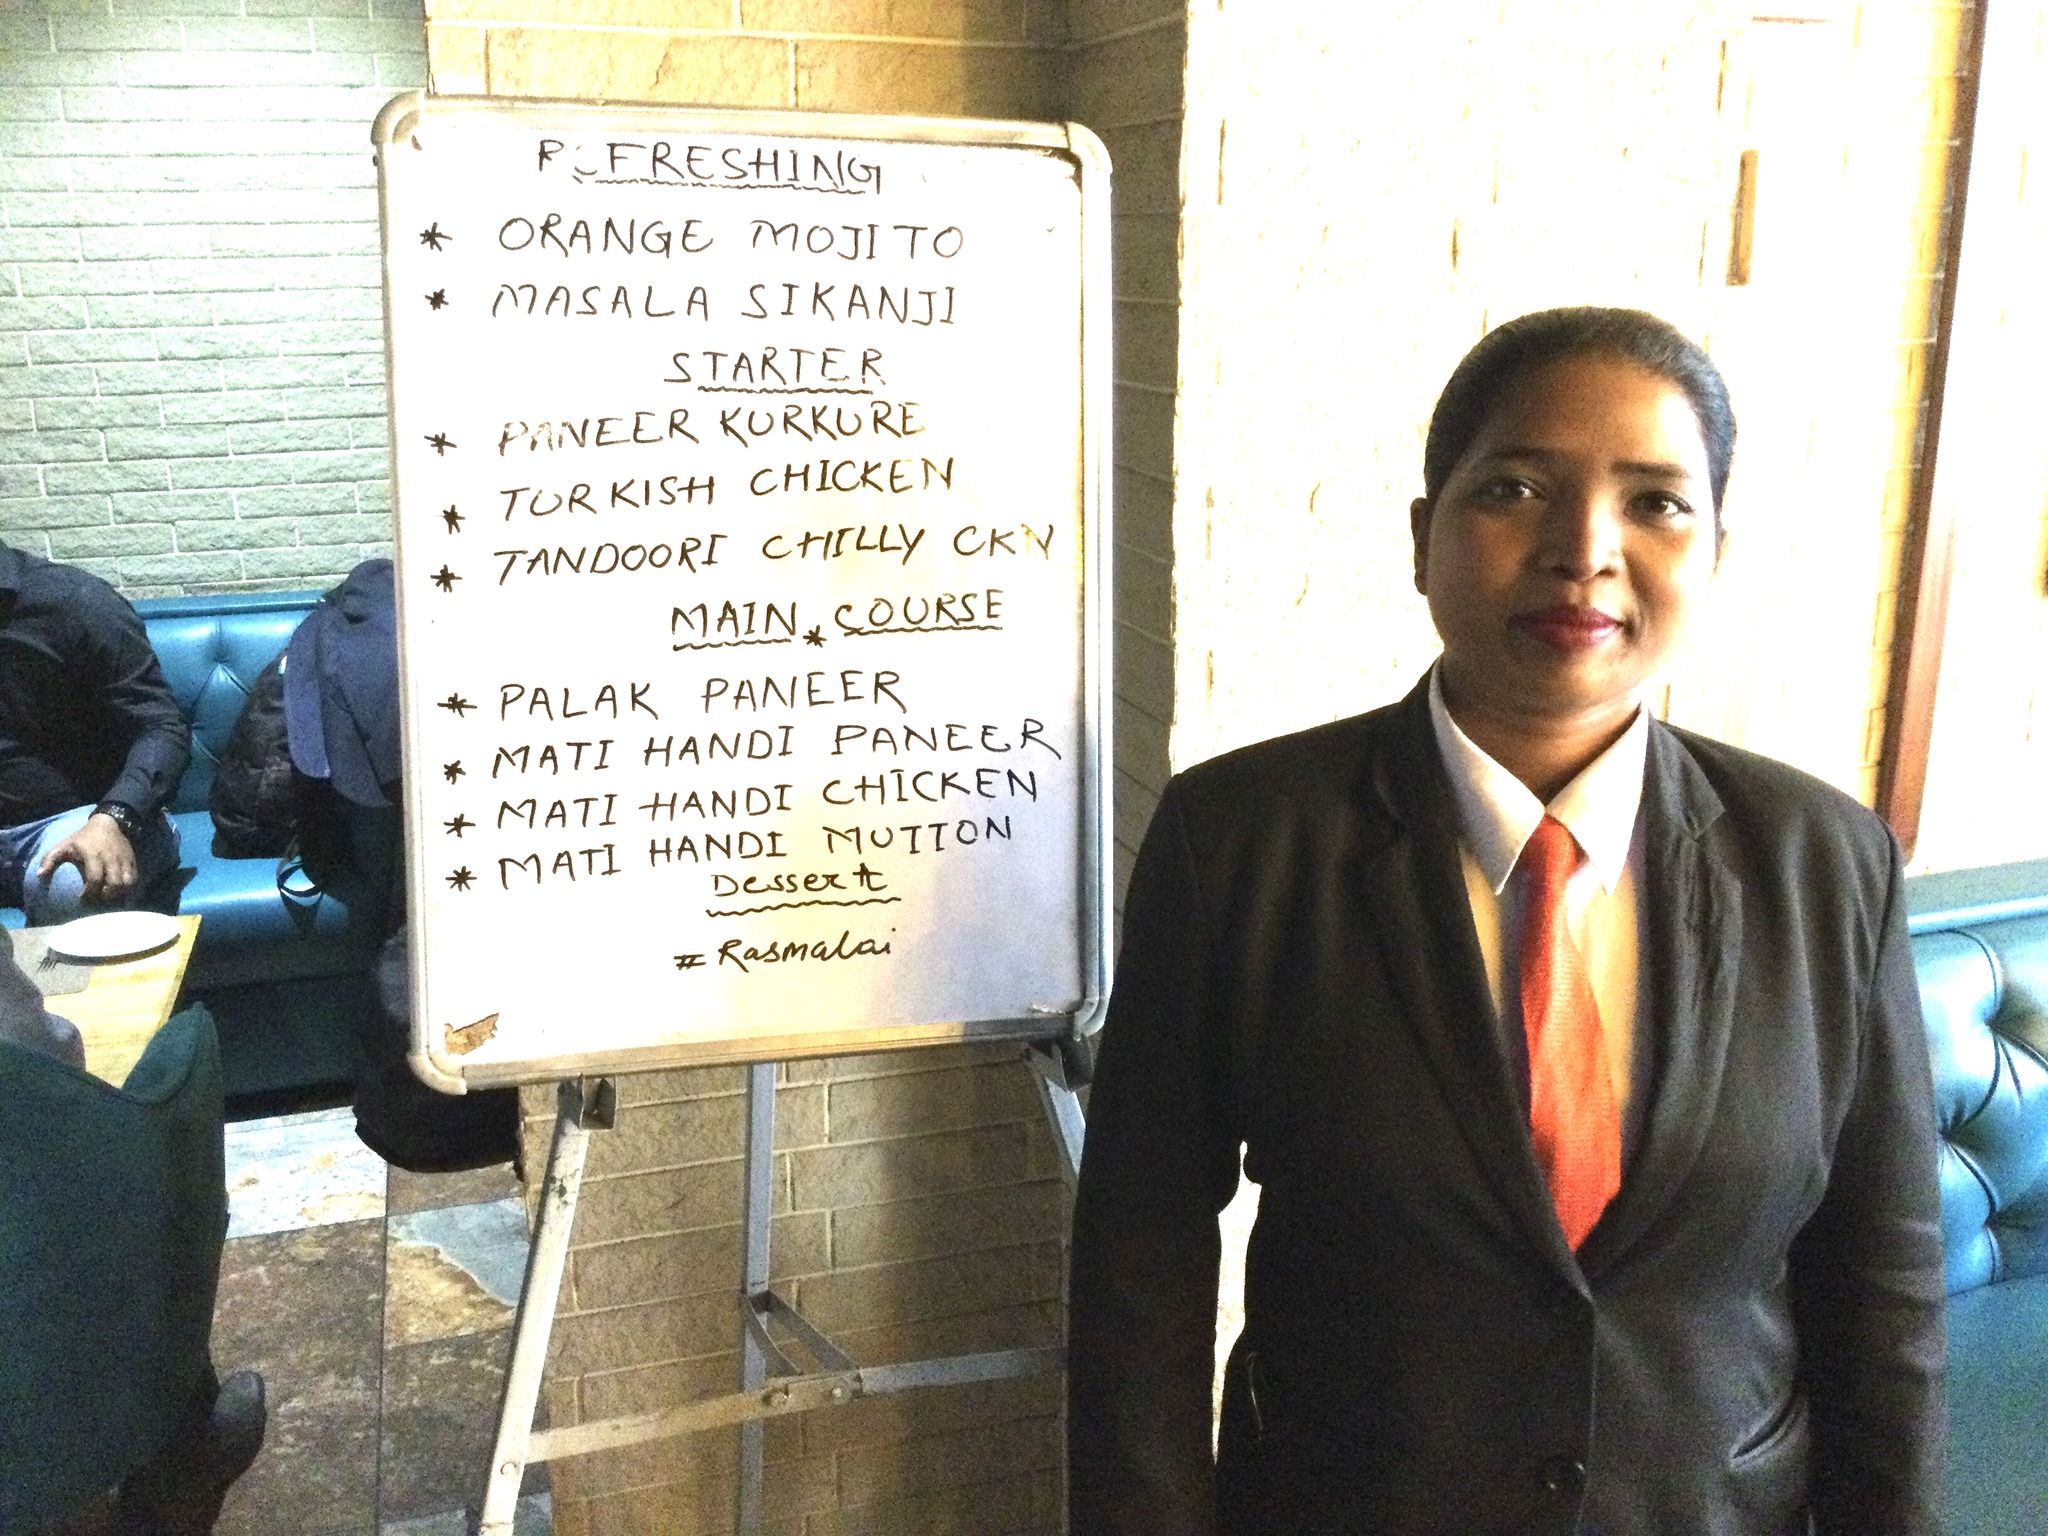 REFRESHING
* ORANGE MOJITO
* MASALA SIKANJI
STARTER
* PANEER KURKURE
* TURKISH CHICKEN
* TANDOORI CHILLY CKN
MAIN * COURSE
* PALAK PANEER
* MATI HANDI PANEER
* MATI HANDI CHICKEN
* MATI HANDI MUTTON
Dessert
# Rasmalai